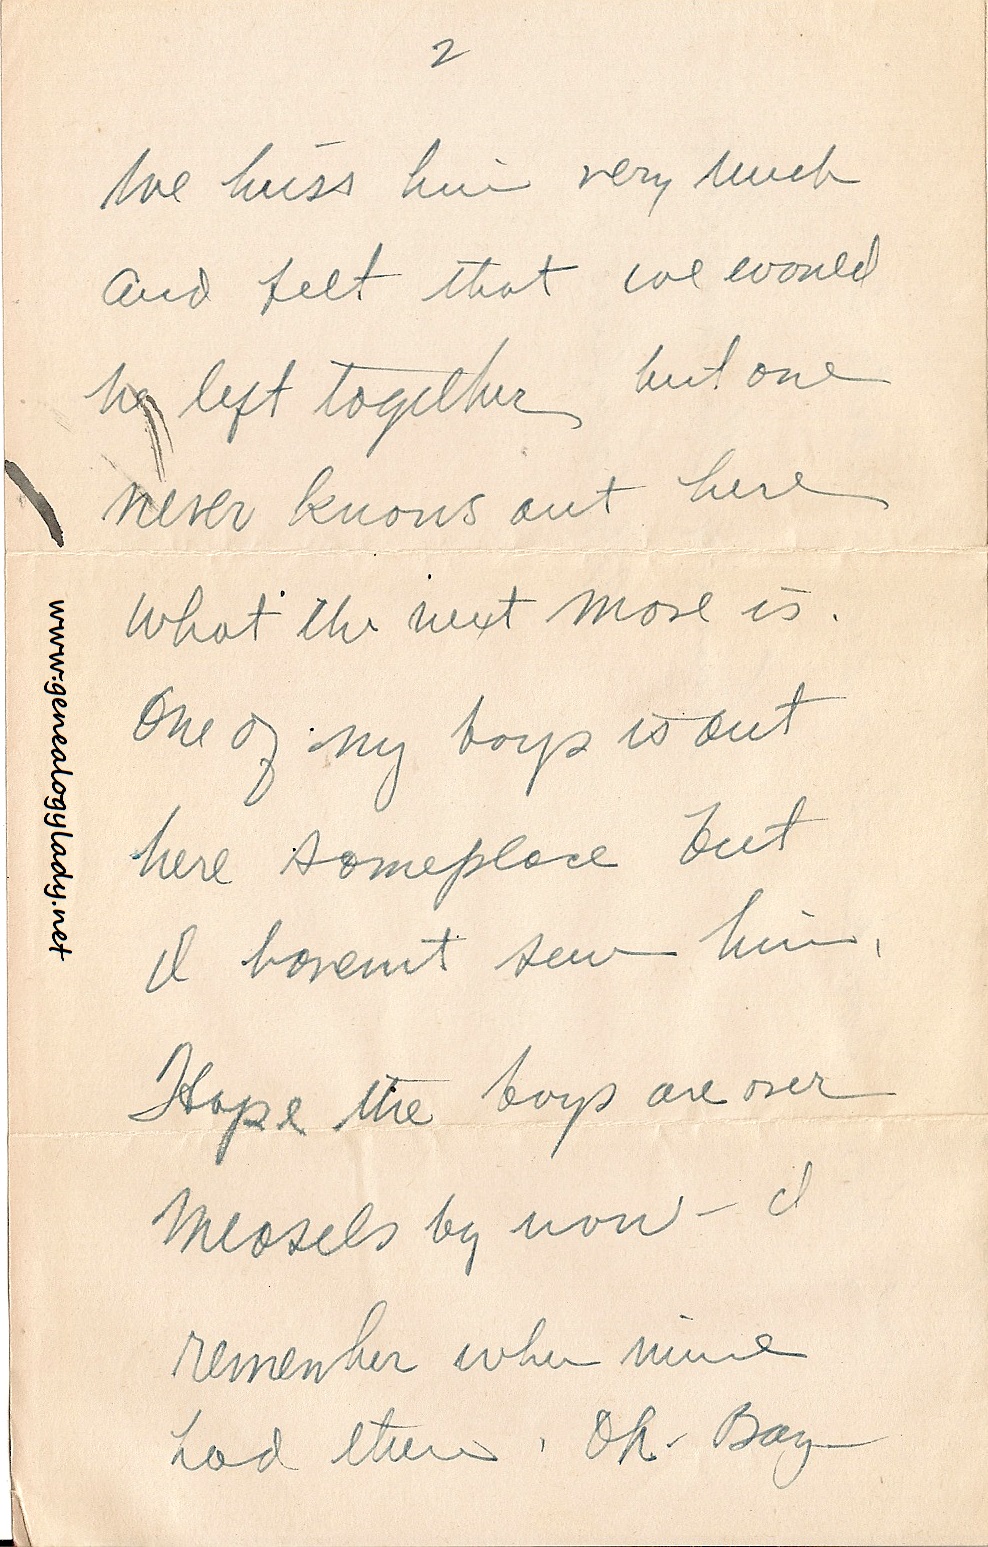 2
We miss him very much
and felt that we would
be left together but one
never knows out here
what the next move is.
One of my boys is out
here someplace but
I havent seen him.
Hope the boys are over
Measels by now - I
remember when mine
had them. Oh - Boy
www.genealogylady.net